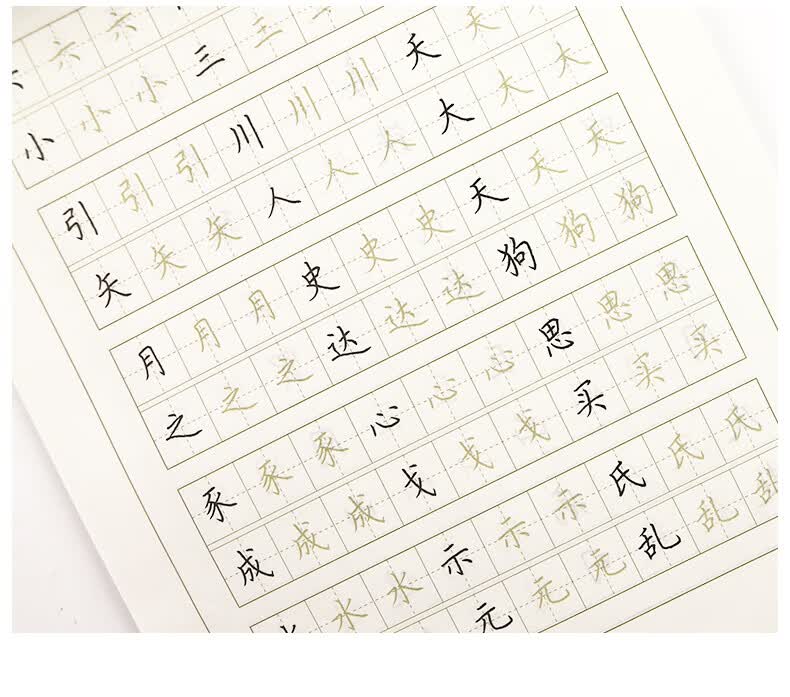 六 六
小 小 小 三 三
引 引 引 川 川 川 夭 夭
矢 矢 矢 人 人 人 大 大 大
月 月 月 史 史 史 天 天 天
之 之 之 达 达 达 狗 狗 狗
豕 豕 豕 心 心 心 思 思 思
成 成 成 戈 戈 戈 买 买 买
水 水 示 示 示 氏 氏 氏
元 元 元 乱 乱 乱